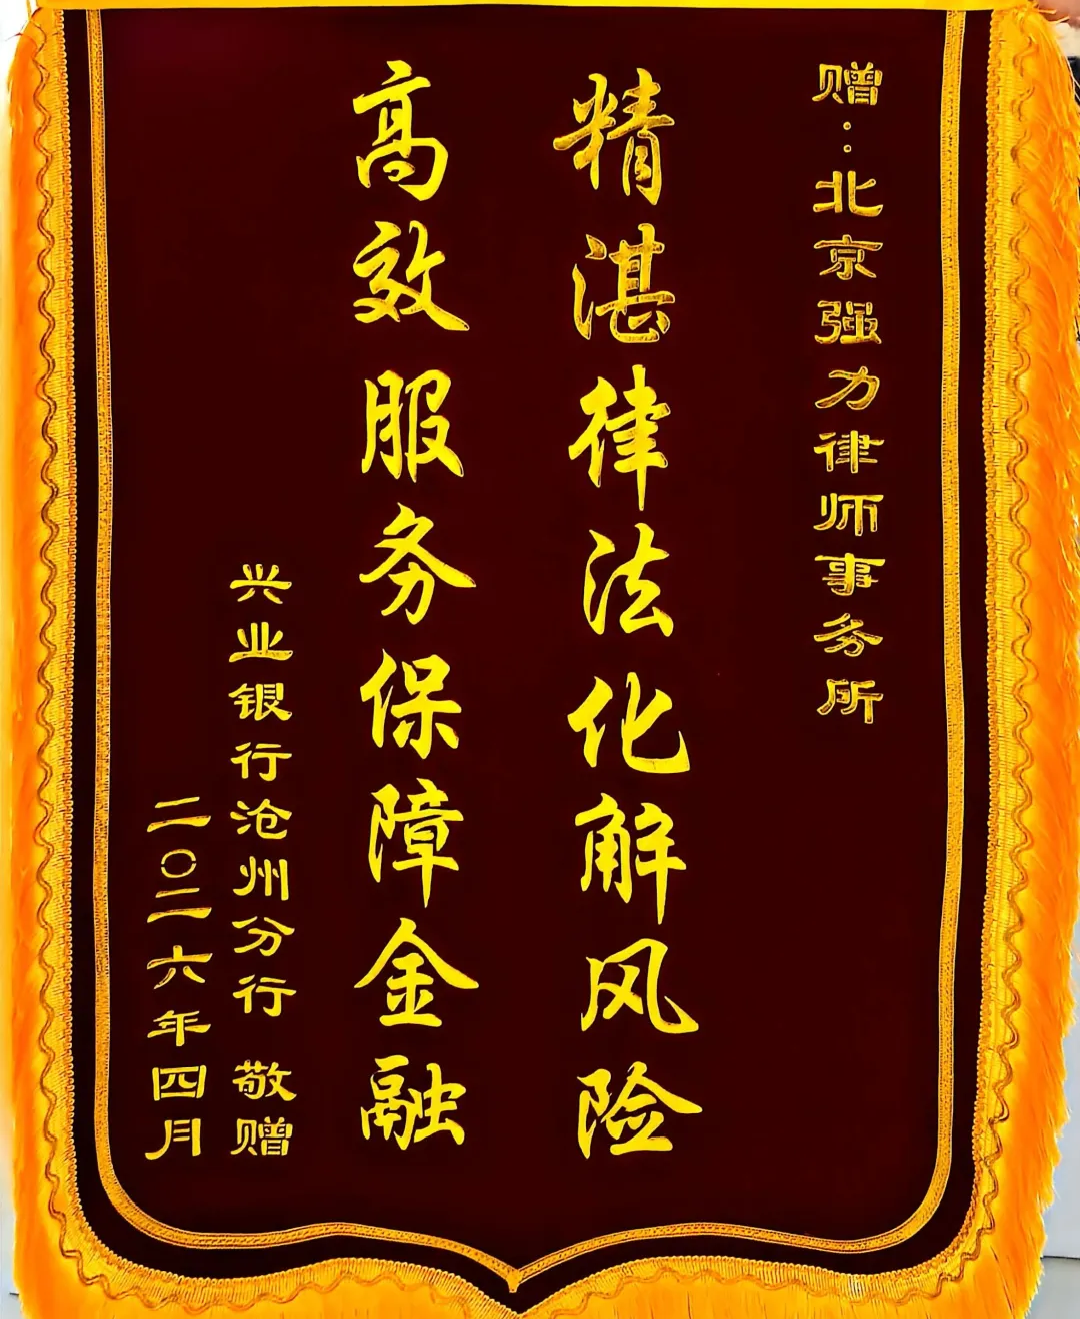 赠：北京强力律师事务所
精湛律法化解风险
高效服务保障金融
兴业银行沧州分行 敬赠
二〇二六年四月